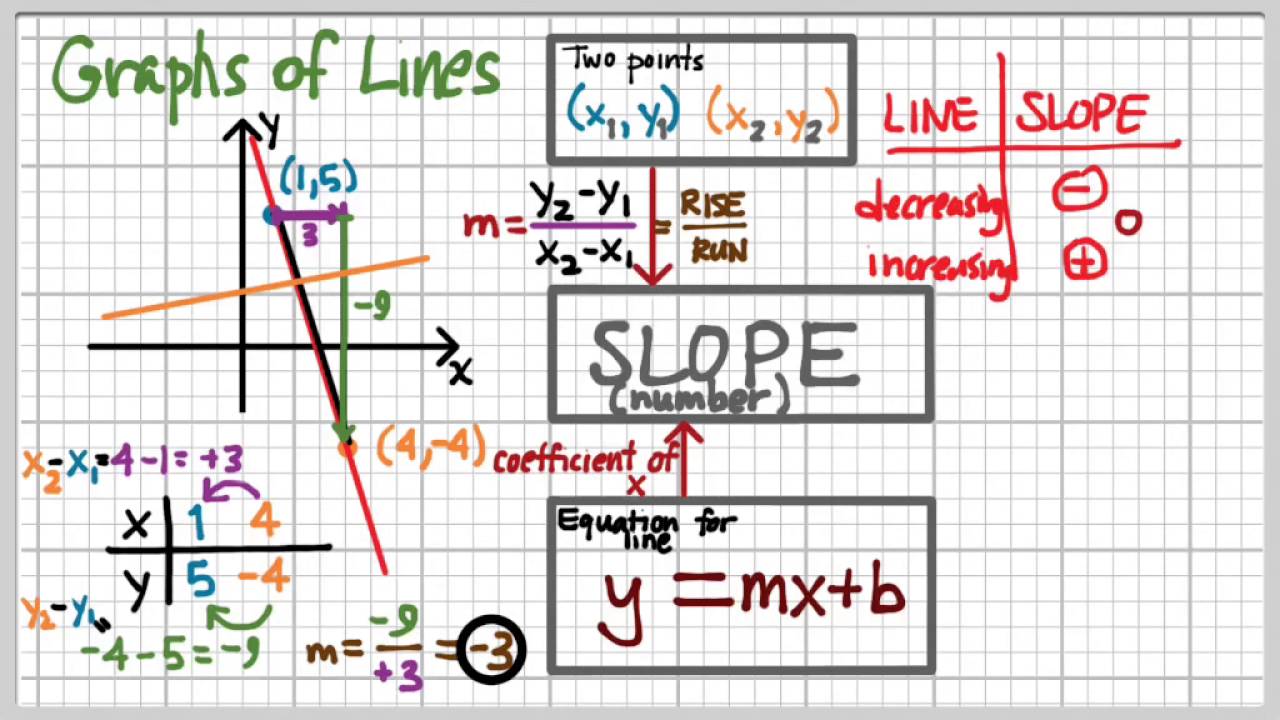 Graphs of Lines
Y
(1,5)
3
-9
X
(4,-4)
x₂-x₁=4-1=+3
X 1 4
Y 5 -4
y₂-y₁=
-4-5=-9
m=-9/+3=-3
Two points
(x₁,y₁) (x₂,y₂)
m=y₂-y₁/x₂-x₁=RISE/RUN
SLOPE
(number)
coefficient of
x
Equation for
line
y=mx+b
LINE SLOPE
decreasing -
0
increasing +